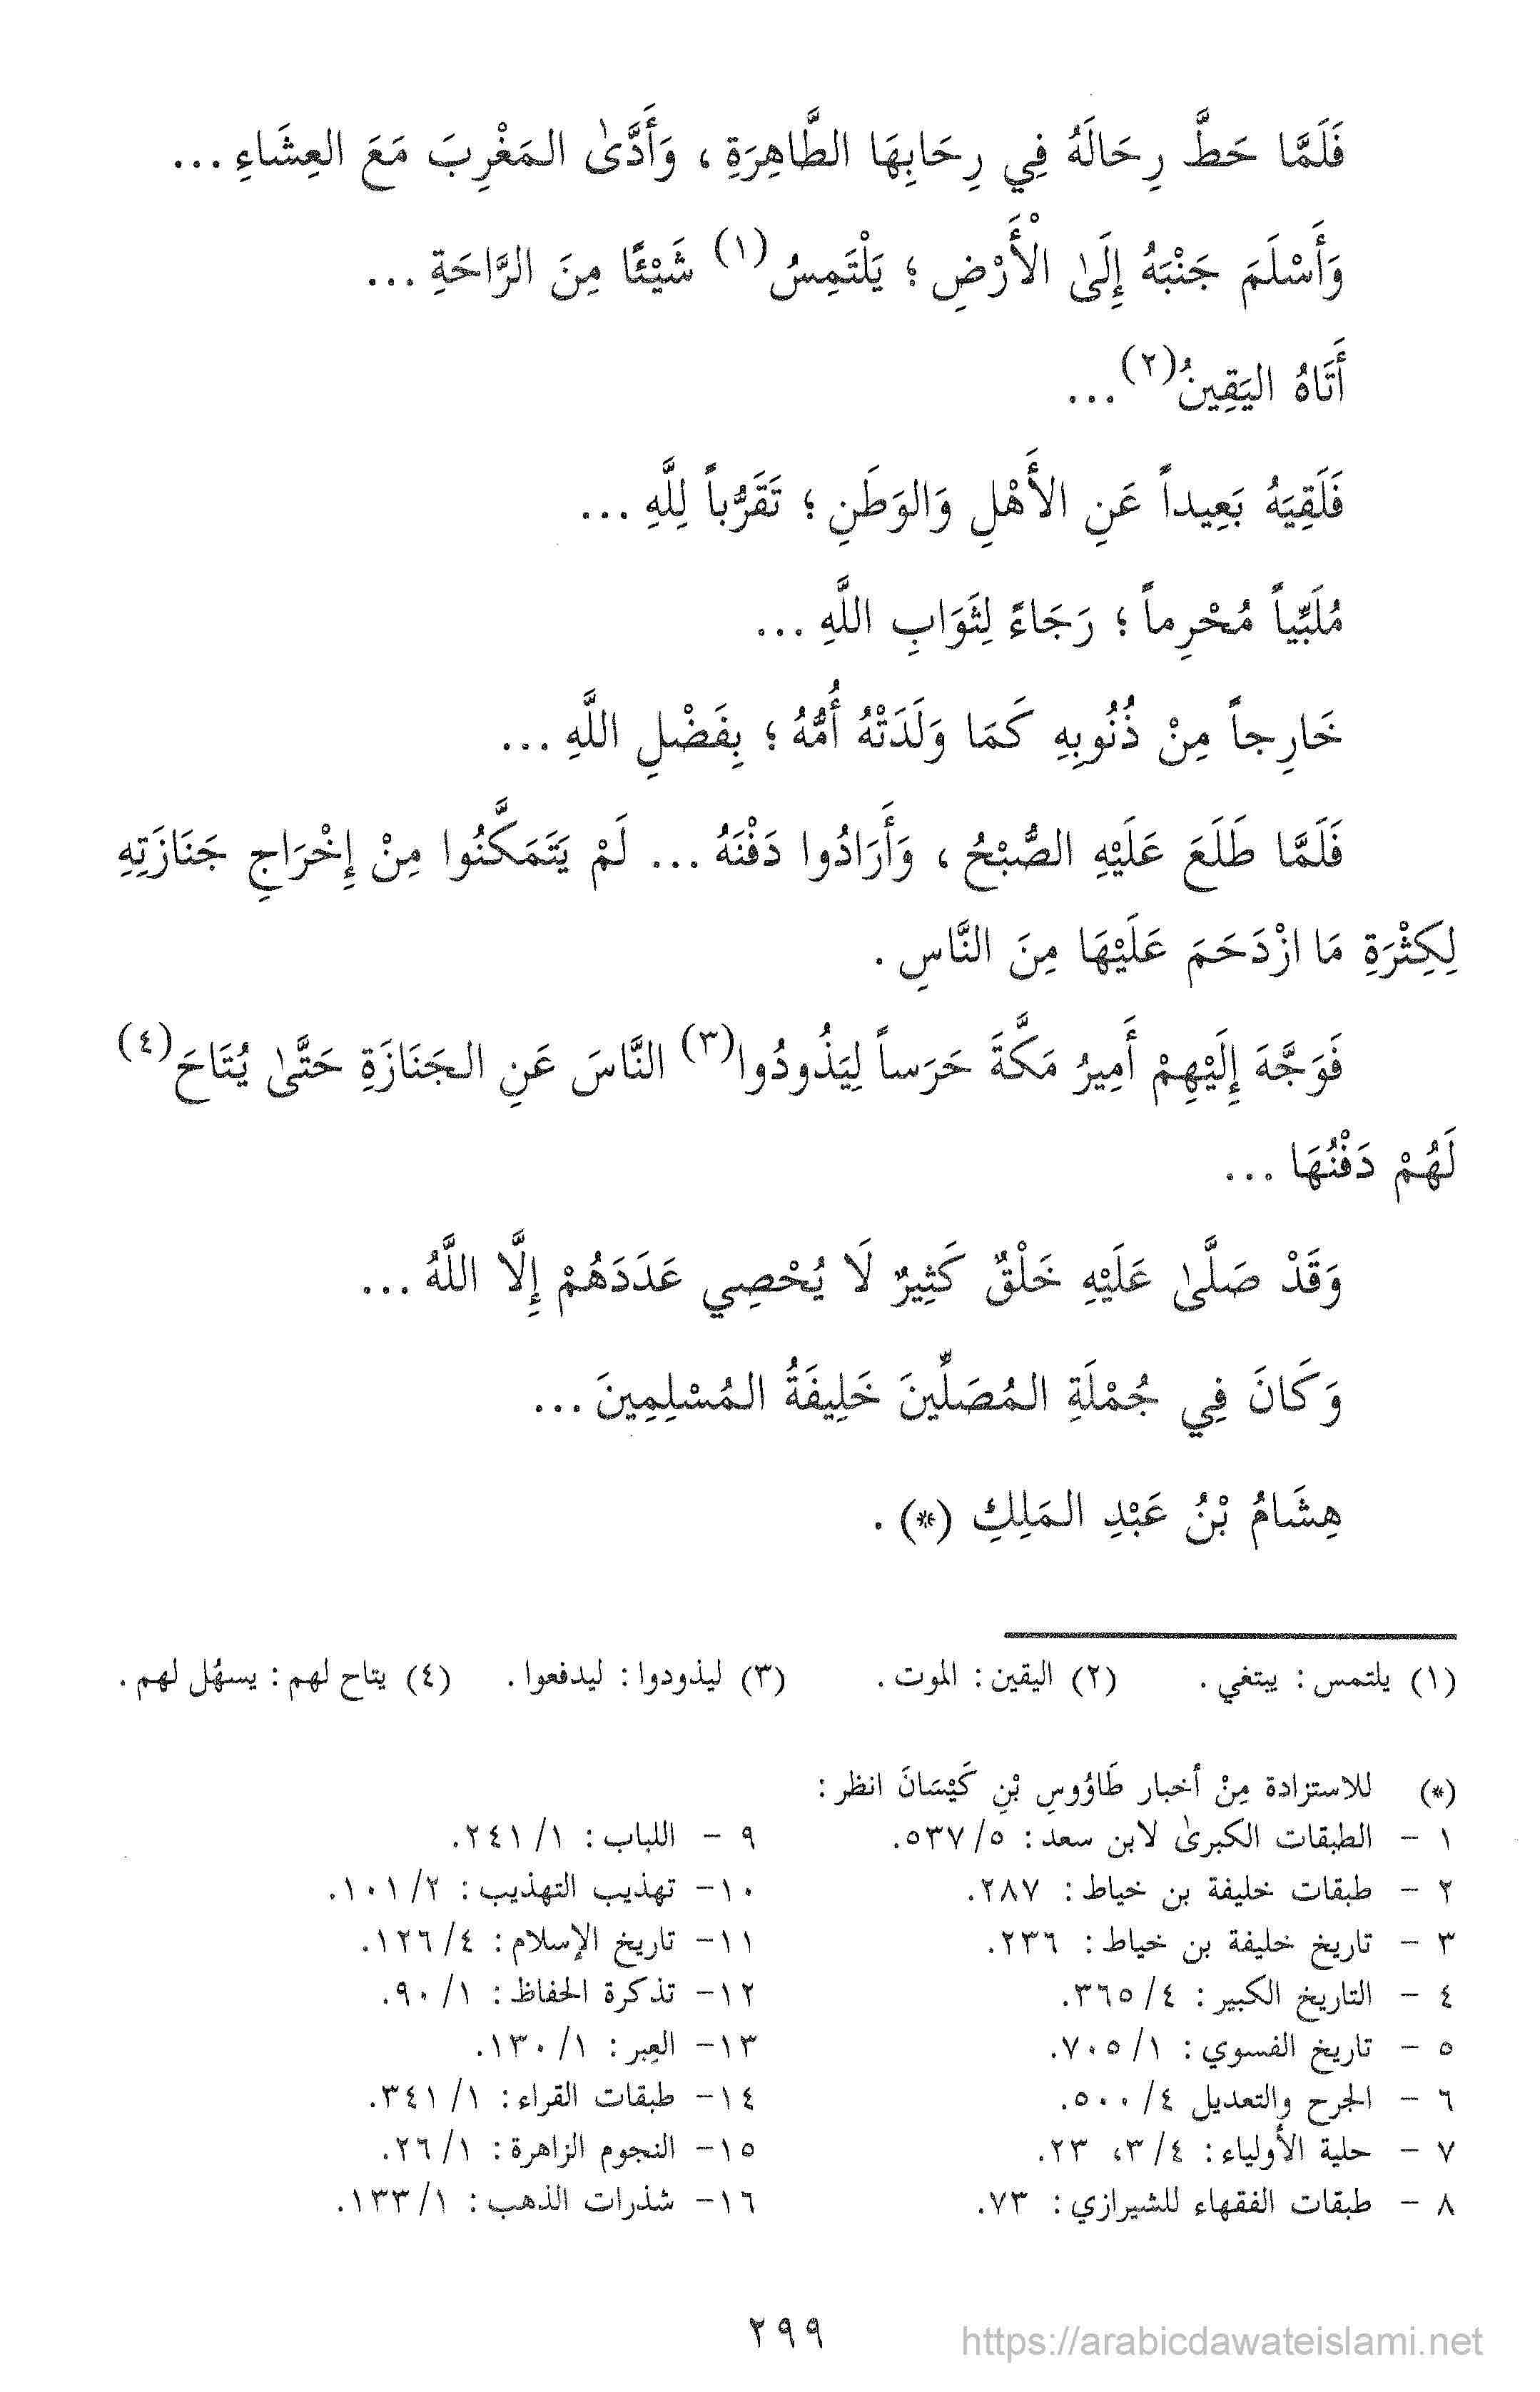 فَلَمَّا حَطَّ رِحَالَهُ فِي رِحَابِهَا الطَّاهِرَةِ ، وَأَدَّىٰ المَغْرِبَ مَعَ العِشَاءِ ...
وَأَسْلَمَ جَنْبَهُ إِلَىٰ الْأَرْضِ ؛ يَلْتَمِسُ(١) شَيْئًا مِنَ الرَّاحَةِ ...
أَتَاهُ اليَقِينُ(٢) ...
فَلَقِيَهُ بَعِيداً عَنِ الأَهْلِ وَالوَطَنِ ؛ تَقَرُّباً لِلَّهِ ...
مُلَبِّياً مُحْرِماً ؛ رَجَاءً لِثَوَابِ اللَّهِ ...
خَارِجاً مِنْ ذُنُوبِهِ كَمَا وَلَدَتْهُ أُمُّهُ ؛ بِفَضْلِ اللَّهِ ...
فَلَمَّا طَلَعَ عَلَيْهِ الصُّبْحُ ، وَأَرَادُوا دَفْنَهُ ... لَمْ يَتَمَكَّنُوا مِنْ إِخْرَاجِ جَنَازَتِهِ
لِكِثْرَةِ مَا ازْدَحَمَ عَلَيْهَا مِنَ النَّاسِ .
فَوَجَّهَ إِلَيْهِمْ أَمِيرُ مَكَّةَ حَرَساً لِيَذُودُوا(٣) النَّاسَ عَنِ الجَنَازَةِ حَتَّىٰ يُتَاحَ(٤)
لَهُمْ دَفْنُهَا ...
وَقَدْ صَلَّىٰ عَلَيْهِ خَلْقٌ كَثِيرٌ لَا يُحْصِي عَدَدَهُمْ إِلَّا اللَّهُ ...
وَكَانَ فِي جُمْلَةِ المُصَلِّينَ خَلِيفَةُ المُسْلِمِينَ ...
هِشَامُ بْنُ عَبْدِ المَلِكِ (*) .
(١) يلتمس : يبتغي . (٢) اليقين : الموت . (٣) ليذودوا : ليدفعوا . (٤) يتاح لهم : يسهُل لهم .
(*) للاستزادة مِنْ أخبار طَاوُوسِ بْنِ كَيْسَانَ انظر :
١ - الطبقات الكبرىٰ لابن سعد : ٥/ ٥٣٧.
٢ - طبقات خليفة بن خياط : ٢٨٧.
٣ - تاريخ خليفة بن خياط : ٢٣٦.
٤ - التاريخ الكبير : ٤/ ٣٦٥.
٥ - تاريخ الفسوي : ١/ ٧٠٥.
٦ - الجرح والتعديل ٤/ ٥٠٠.
٧ - حلية الأولياء : ٤/ ٣، ٢٣.
٨ - طبقات الفقهاء للشيرازي : ٧٣.
٩ - اللباب : ١/ ٢٤١.
١٠- تهذيب التهذيب : ٢/ ١٠١.
١١- تاريخ الإسلام : ٤/ ١٢٦.
١٢- تذكرة الحفاظ : ١/ ٩٠.
١٣- العِبر : ١/ ١٣٠.
١٤- طبقات القراء : ١/ ٣٤١.
١٥- النجوم الزاهرة : ١/ ٢٦.
١٦- شذرات الذهب : ١/ ١٣٣.
٢٩٩
https://arabicdawateislami.net